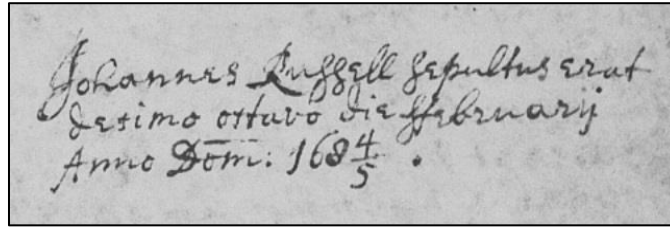 Johannes Russell sepultus erat
desimo octavo die ffebruarij
Anno Dom̄: 168 4/5 .